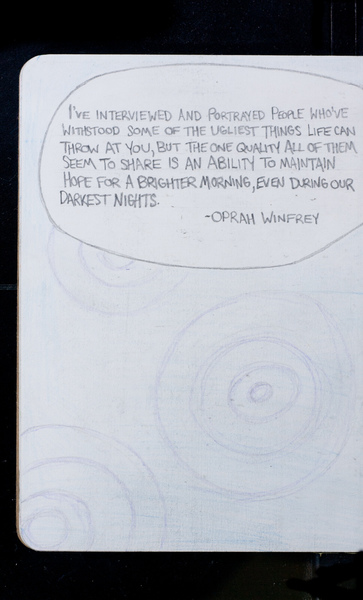 I'VE INTERVIEWED AND PORTRAYED PEOPLE WHO'VE
WITHSTOOD SOME OF THE UGLIEST THINGS LIFE CAN
THROW AT YOU, BUT THE ONE QUALITY ALL OF THEM
SEEM TO SHARE IS AN ABILITY TO MAINTAIN
HOPE FOR A BRIGHTER MORNING, EVEN DURING OUR
DARKEST NIGHTS.
-OPRAH WINFREY